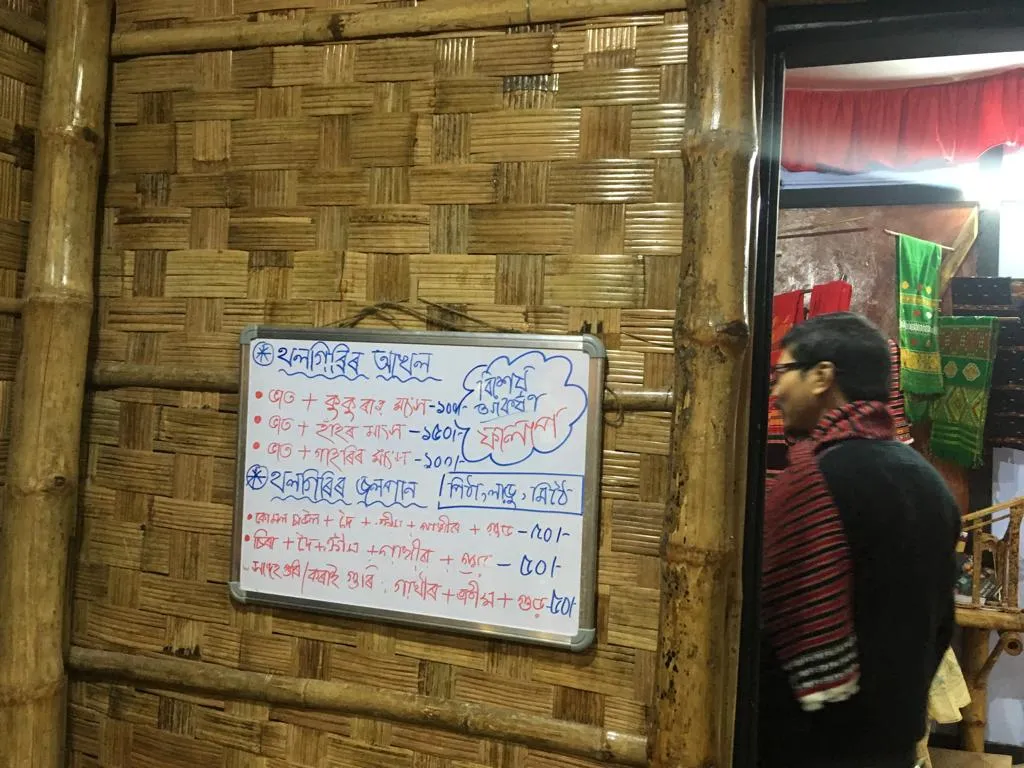 থলগিৰিৰ আখল
ভাত + কুকুৰাৰ মাংস -১০০/-
ভাত + হাঁহৰ মাংস -১৫০/-
ভাত + গাহৰিৰ মাংস -১০০/-
বিশেষ
আকৰ্ষণ
থলগিৰিৰ জলপান
পিঠা, লাড়ু, মিঠৈ
কোমল চাউল + দৈ + + গাখীৰ + গুড় -৫০/-
চিৰা + দৈ + + গাখীৰ + গুড় - ৫০/-
গুৰি / গুৰি : গাখীৰ + + গুড় -৫০/-